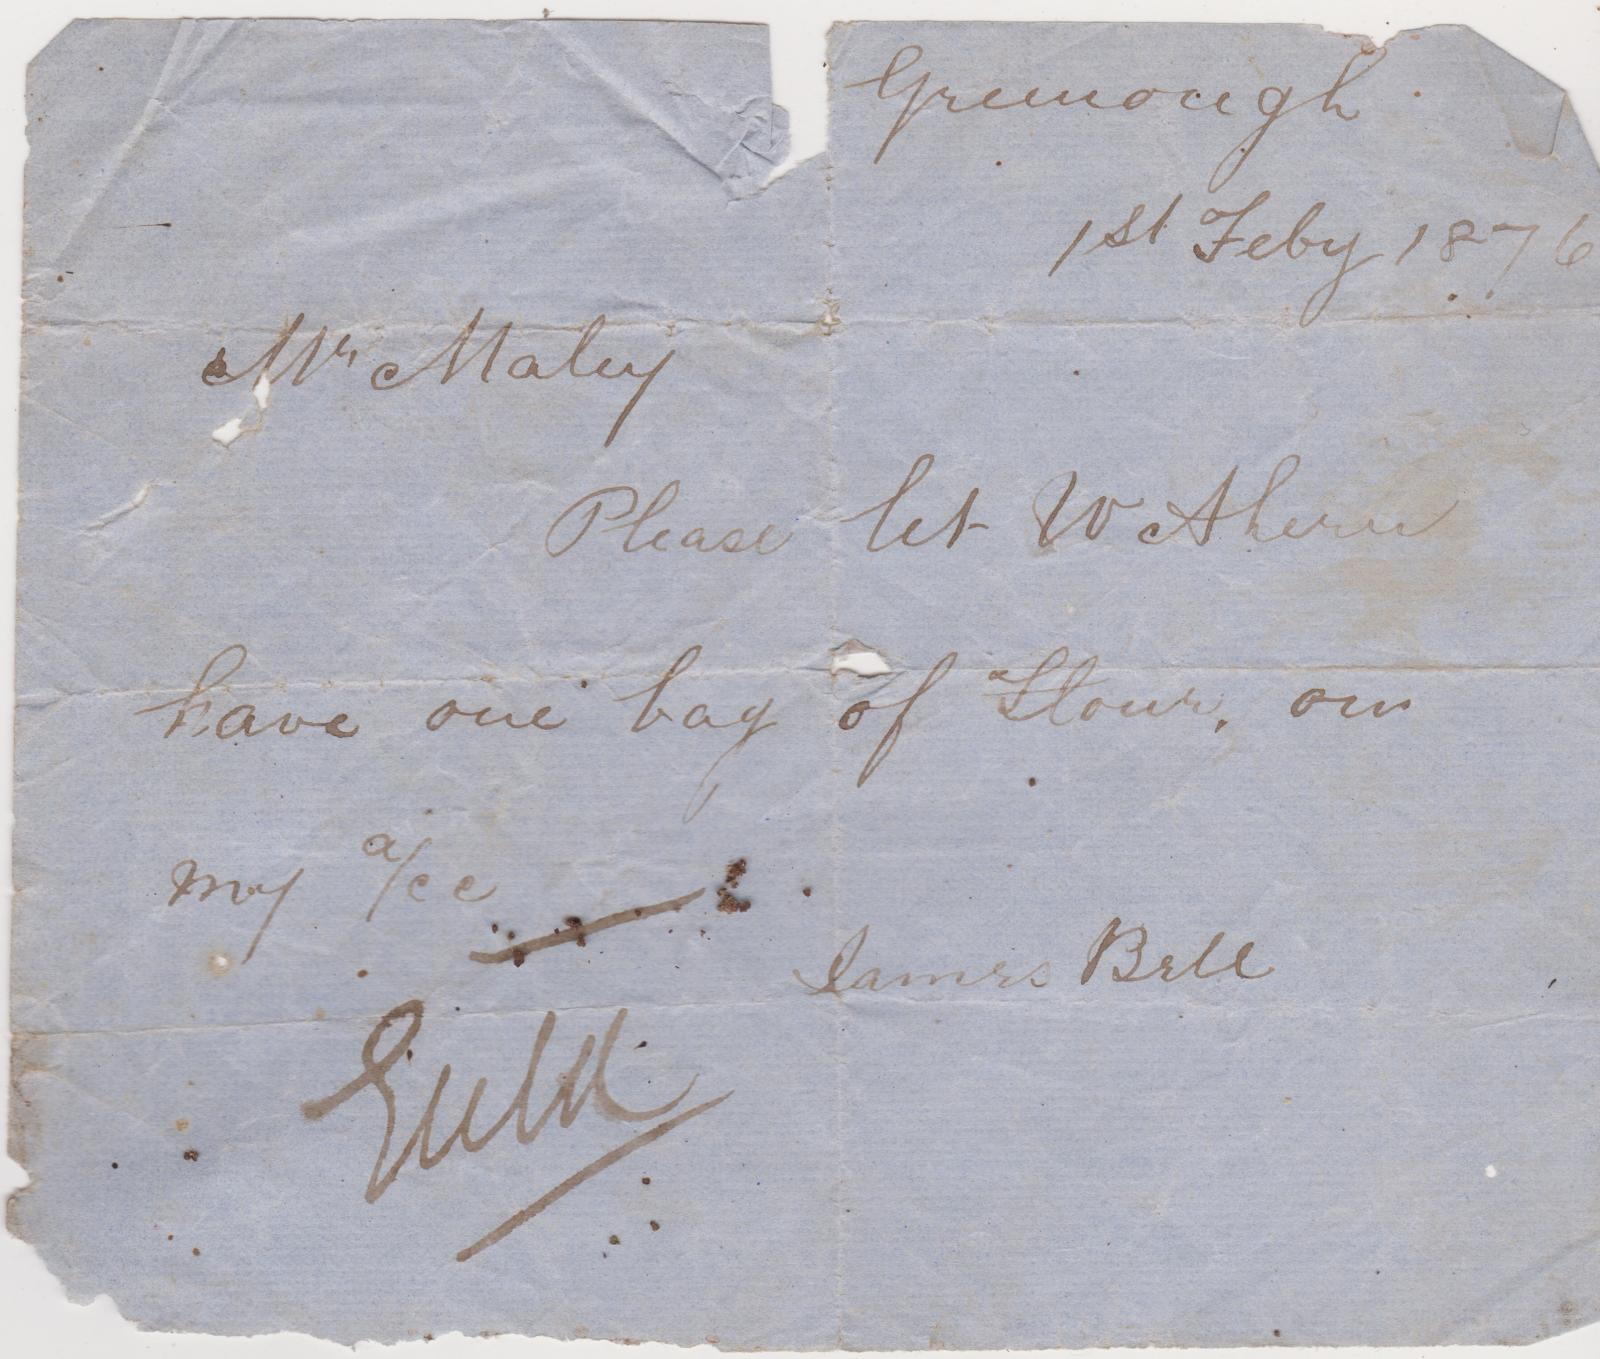 Greenough
1st Feby 1876
Mr Maley
Please let W Ahern
have one bag of Flour, on
my a/cc
James Bell